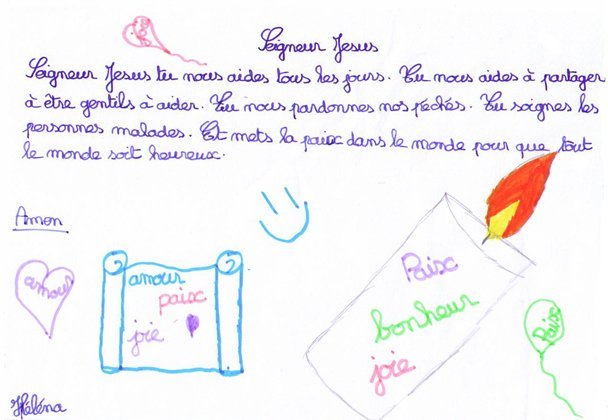 Seigneur Jesus
Seigneur Jesus tu nous aides tous les jours. Tu nous aides à partager
à être gentils à aider. Tu nous pardonnes nos péchés. Tu soignes les
personnes malades. Et mets la paix dans le monde pour que tout
le monde soit heureux.
Amen
amour
amour
paix
joie
Paix
bonheur
joie
Paix
Héléna